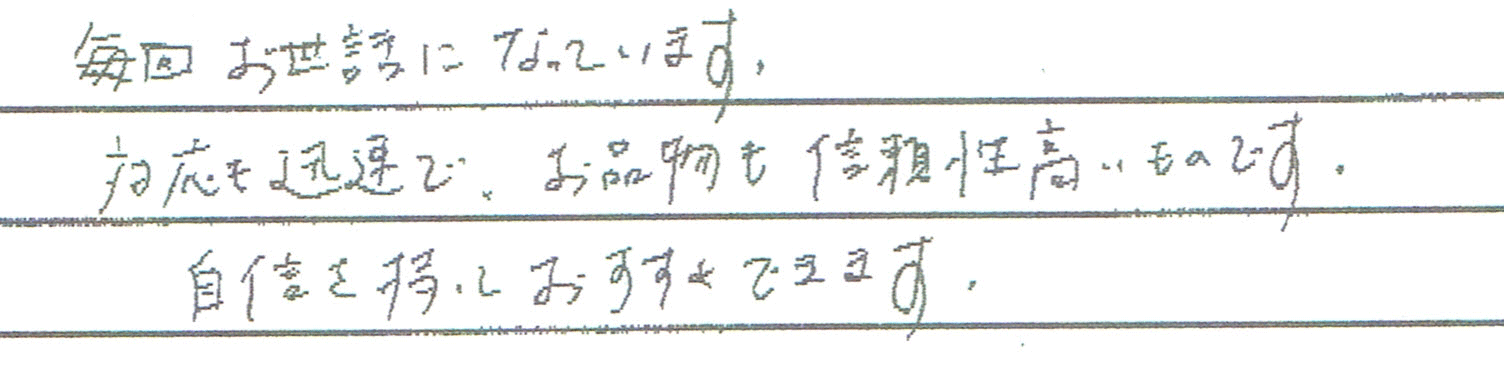 毎回お世話になっています。
対応も迅速で、お品物も信頼性高いものです。
自信を持っておすすめできます。